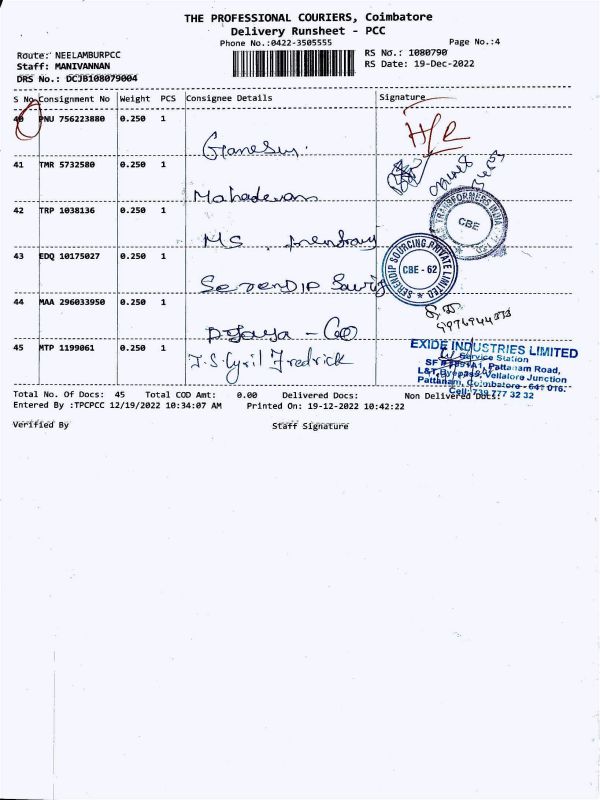 THE PROFESSIONAL COURIERS, Coimbatore
Delivery Runsheet - PCC
Phone No.:0422-3505555
Page No.:4
Route: NEELAMBURPCC
RS No.: 1080790
Staff: MANIVANNAN
RS Date: 19-Dec-2022
DRS No.: DCJB108079004
S No Consignment No Weight PCS Consignee Details Signature
40 PNU 756223880 0.250 1
Ganesh
41 TMR 5732580 0.250 1
Mahadevan
42 TRP 1038136 0.250 1
TRANSFORMERS INDIA
CBE
MS
43 EDQ 10175027 0.250 1
SERENDIP SOURCING PRIVATE LIMITED
CBE - 62
SerenDIP
44 MAA 296033950 0.250 1
45 MTP 1199061 0.250 1
J.S. Cyril Fredrick
EXIDE INDUSTRIES LIMITED
Service Station
Pattanam Road,
L&T Byepass, Vellalore Junction
Pattanam, Coimbatore - 641 016.
Cell: 739 777 32 32
Total No. Of Docs: 45 Total COD Amt: 0.00 Delivered Docs: Non Delivered Docs:
Entered By :TPCPCC 12/19/2022 10:34:07 AM Printed On: 19-12-2022 10:42:22
Verified By Staff Signature